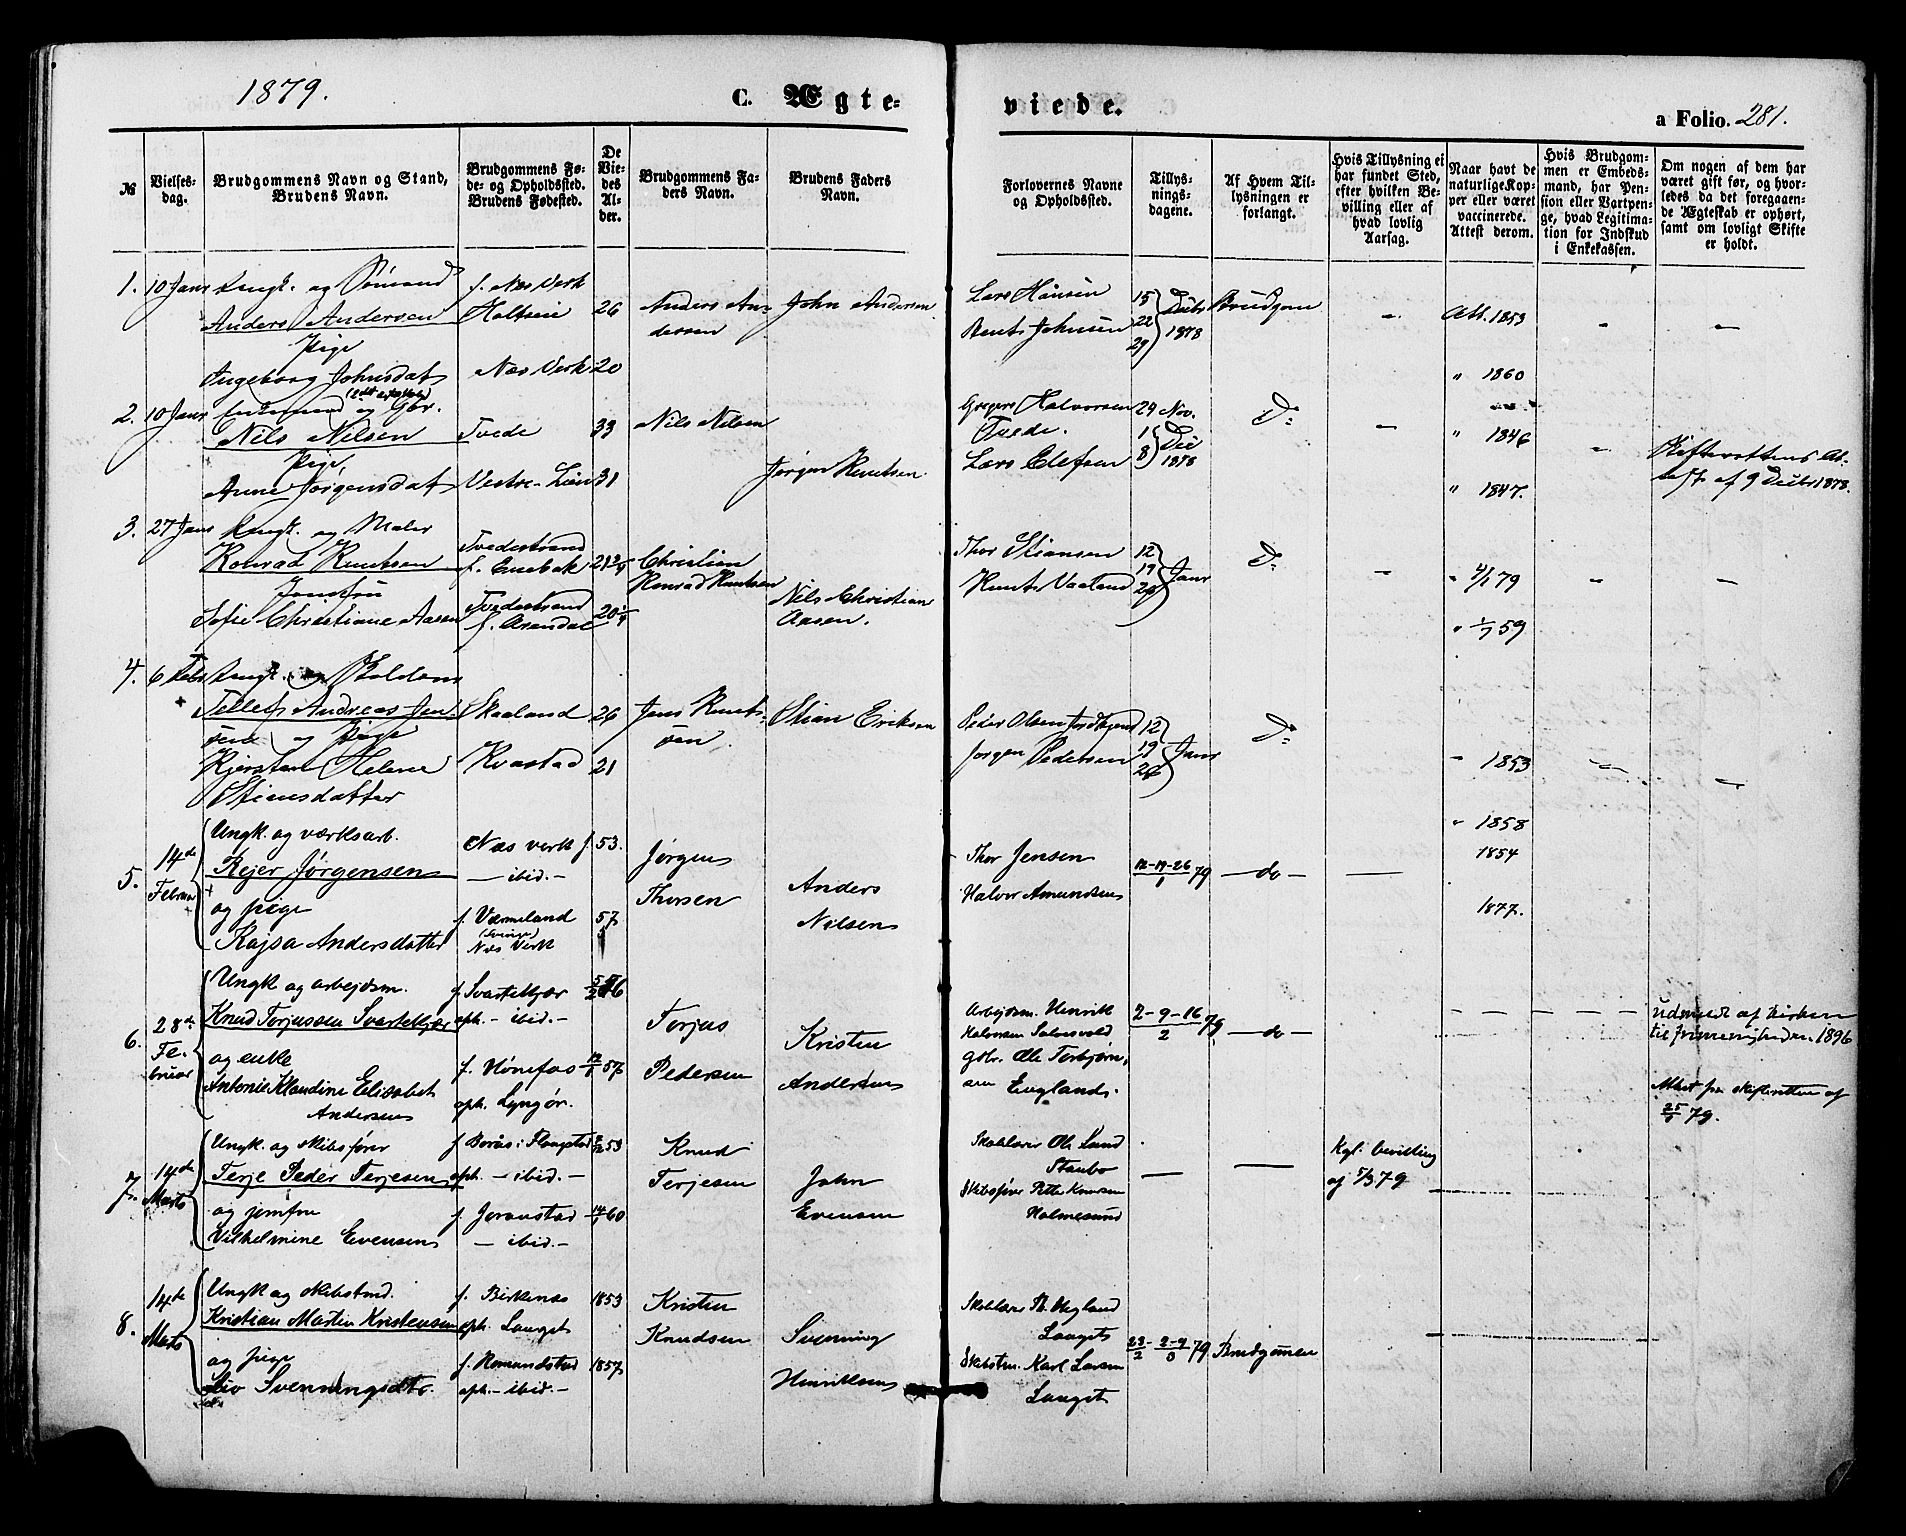 1879.
C. Ægte-
viede.
a Folio. 281.
№
Vielses-
dag.
Brudgommens Navn og Stand,
Brudens Navn.
Brudgommens Fø-
de- og Opholdssted.
Brudens Fødested.
De
Vie-
des
Al-
der.
Brudgommens Fa-
ders Navn.
Brudens Faders
Navn.
Forlovernes Navne
og Opholdssted.
Tillys-
nings-
dagene.
Af Hvem Til-
lysningen er
forlangt.
Hvis Tillysning ei
har fundet Sted,
efter hvilken Be-
villing eller af
hvad lovlig
Aarsag.
Naar havt de
naturlige Kop-
per eller været
vaccinerede.
Attest derom.
Hvis Brudgom-
men er Embeds-
mand, har Pen-
sion eller Vartpen-
ge, hvad Legitima-
tion for Indskud
i Enkekassen.
Om nogen af dem har
været gift før, og hvor-
ledes da det foregaaen-
de Ægteskab er ophørt,
samt om lovligt Skifte
er holdt.
1. 10 Janr Ungk. og Sømand
Anders Andersen
Pige
Ingeborg Johnsdat
f. Næs Verk
Holtseie 26
Næs Verk 20
Anders An-
dersen
John Andersen
Lars Hansen
Bent Johnsen
15
22
29
Decbr
1878
Brudgom
-
Att. 1853
" 1860
-
-
2. 10 Janr Enkemand og Gbr.
Nils Nilsen
Pige
Anne Jørgensdat
Tvede 33
Vestre-Lien 31
Nils Nilsen
Jørgen Knutsen
Gregers Halvorsen
Tvede.
Lars Elefsen
24 Nov.
1
8
Dec
1878
Do
-
" 1846
" 1847.
-
Skifterettens At-
test af 9 Decbr 1878.
3. 27 Janr Ungk. og Maler
Konrad Knutsen
Jomfru
Sofie Christiane Aasen
Tvedestrand
f. Enebak 21 3/4
Tvedestrand
f. Arendal 20 1/4
Christian
Konrad Knutsen
Nils Christian
Aasen.
Thor Stiansen
Knut Vaaland
12
19
26
Janr
Do
-
" 4/1 79
" 1/7 59
-
-
4. 6 Febr Ungk. og
Tellef Andreas Jen-
sen og Pige
Kjersten Helene
Stiansdatter
Skaaland 26
Kvastad 21
Jens Knut-
sen.
Stian Eriksen
Peder Olsen
Jørgen Pedersen
12
19
26
Janr
Do
" 1853
" 1858
-
-
5. 14de
Februar
Ungk. og værksarb.
Rejer Jørgensen
og pige
Kajsa Andersdatter
Næs verk f. 53.
- ibid. -
f. Værmeland 57
(Sverige)
Næs Verk
Jørgen
Thorsen
Anders
Nilsen
Thor Jensen
Halvor Amundsen
12-19-26/1 79
- do -
-
1854
1877.
6. 28de
Fe-
bruar
Ungk og arbejdsm.
Knud Torjussen Svartekjær
og enke
Antonie Klaudine Elisabet
Andersen
f. Svartekjær
oph. - ibid. -
f. Hønefos 57
oph. Lyngør.
Torjus
Pedersen
Kristen
Andersen
Arbejdsm. Henrik
Halvorsen Solvesvold
gbr. Ole Torbjørn-
sen Englands.
2-9-16/2 79
- do -
- - - - - - -
udmeldt af kirken
1896
Attest fra skifteretten af
25/2 79.
7. 14de
Marts
Ungk. og skibsfører
Terje Peder Terjesen
og jomfru
Vilhelmine Evensen
f Borås i Flangstad 53
oph. - ibid. -
f. Joranstad 14/1 60
- ibid. -
Knud
Terjesen
John
Evensen
Skolelærer Ole Lund
Staubo
Skibsfører Peter Knudsen
Holmesund
-
-
Kgl. bevilling
af 5/3 79
8. 14de
Marts
Ungk og skibstmd.
Kristian Martin Kristensen
og pige
Liv Svenningsdtr.
f. Birkenæs 1853
oph. Landget
f. Romundstad 1857
oph. - ibid. -
Kristen
Knudsen
Svenning
Henriksen
Skolelærer Th. Vegland
Skibstm. Karl Larsen
23/2 - 2-9/3 79
Brudgommen